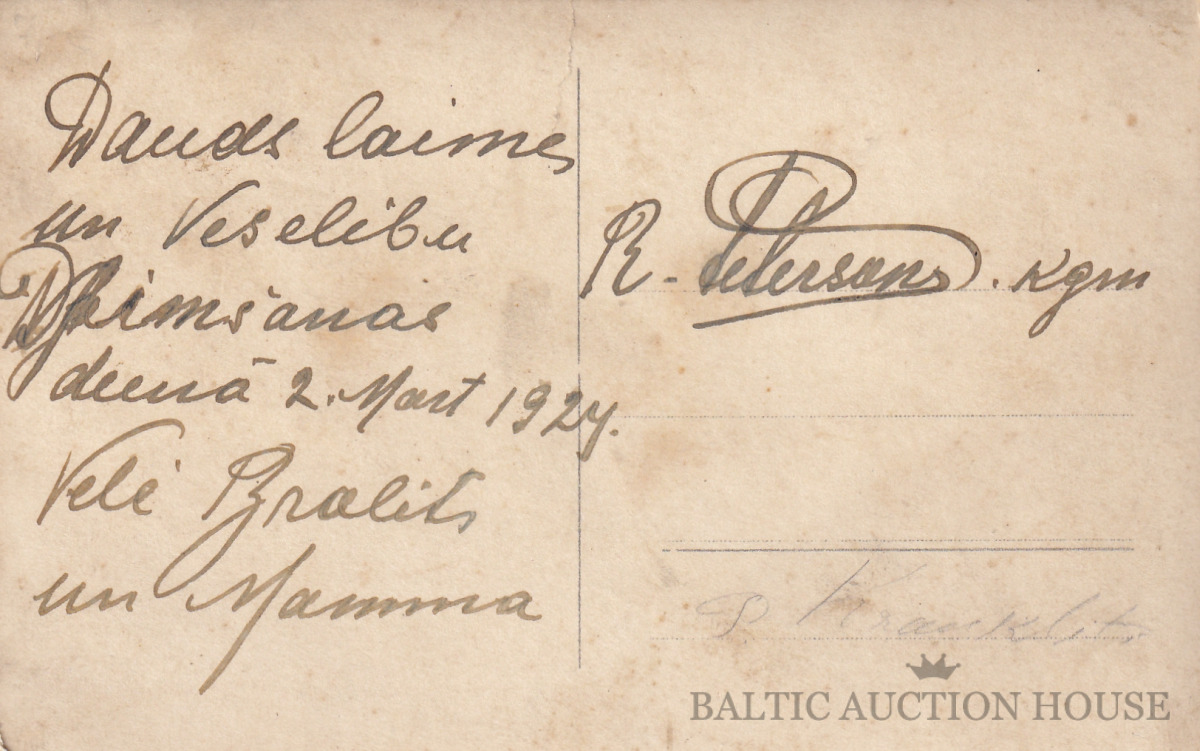 Dauds laimes
un Veselibu
Dzimšanas
deenā 2. Mart 1924.
Vele Bralits
un Mamma
R. Petersons. kgm
BALTIC AUCTION HOUSE